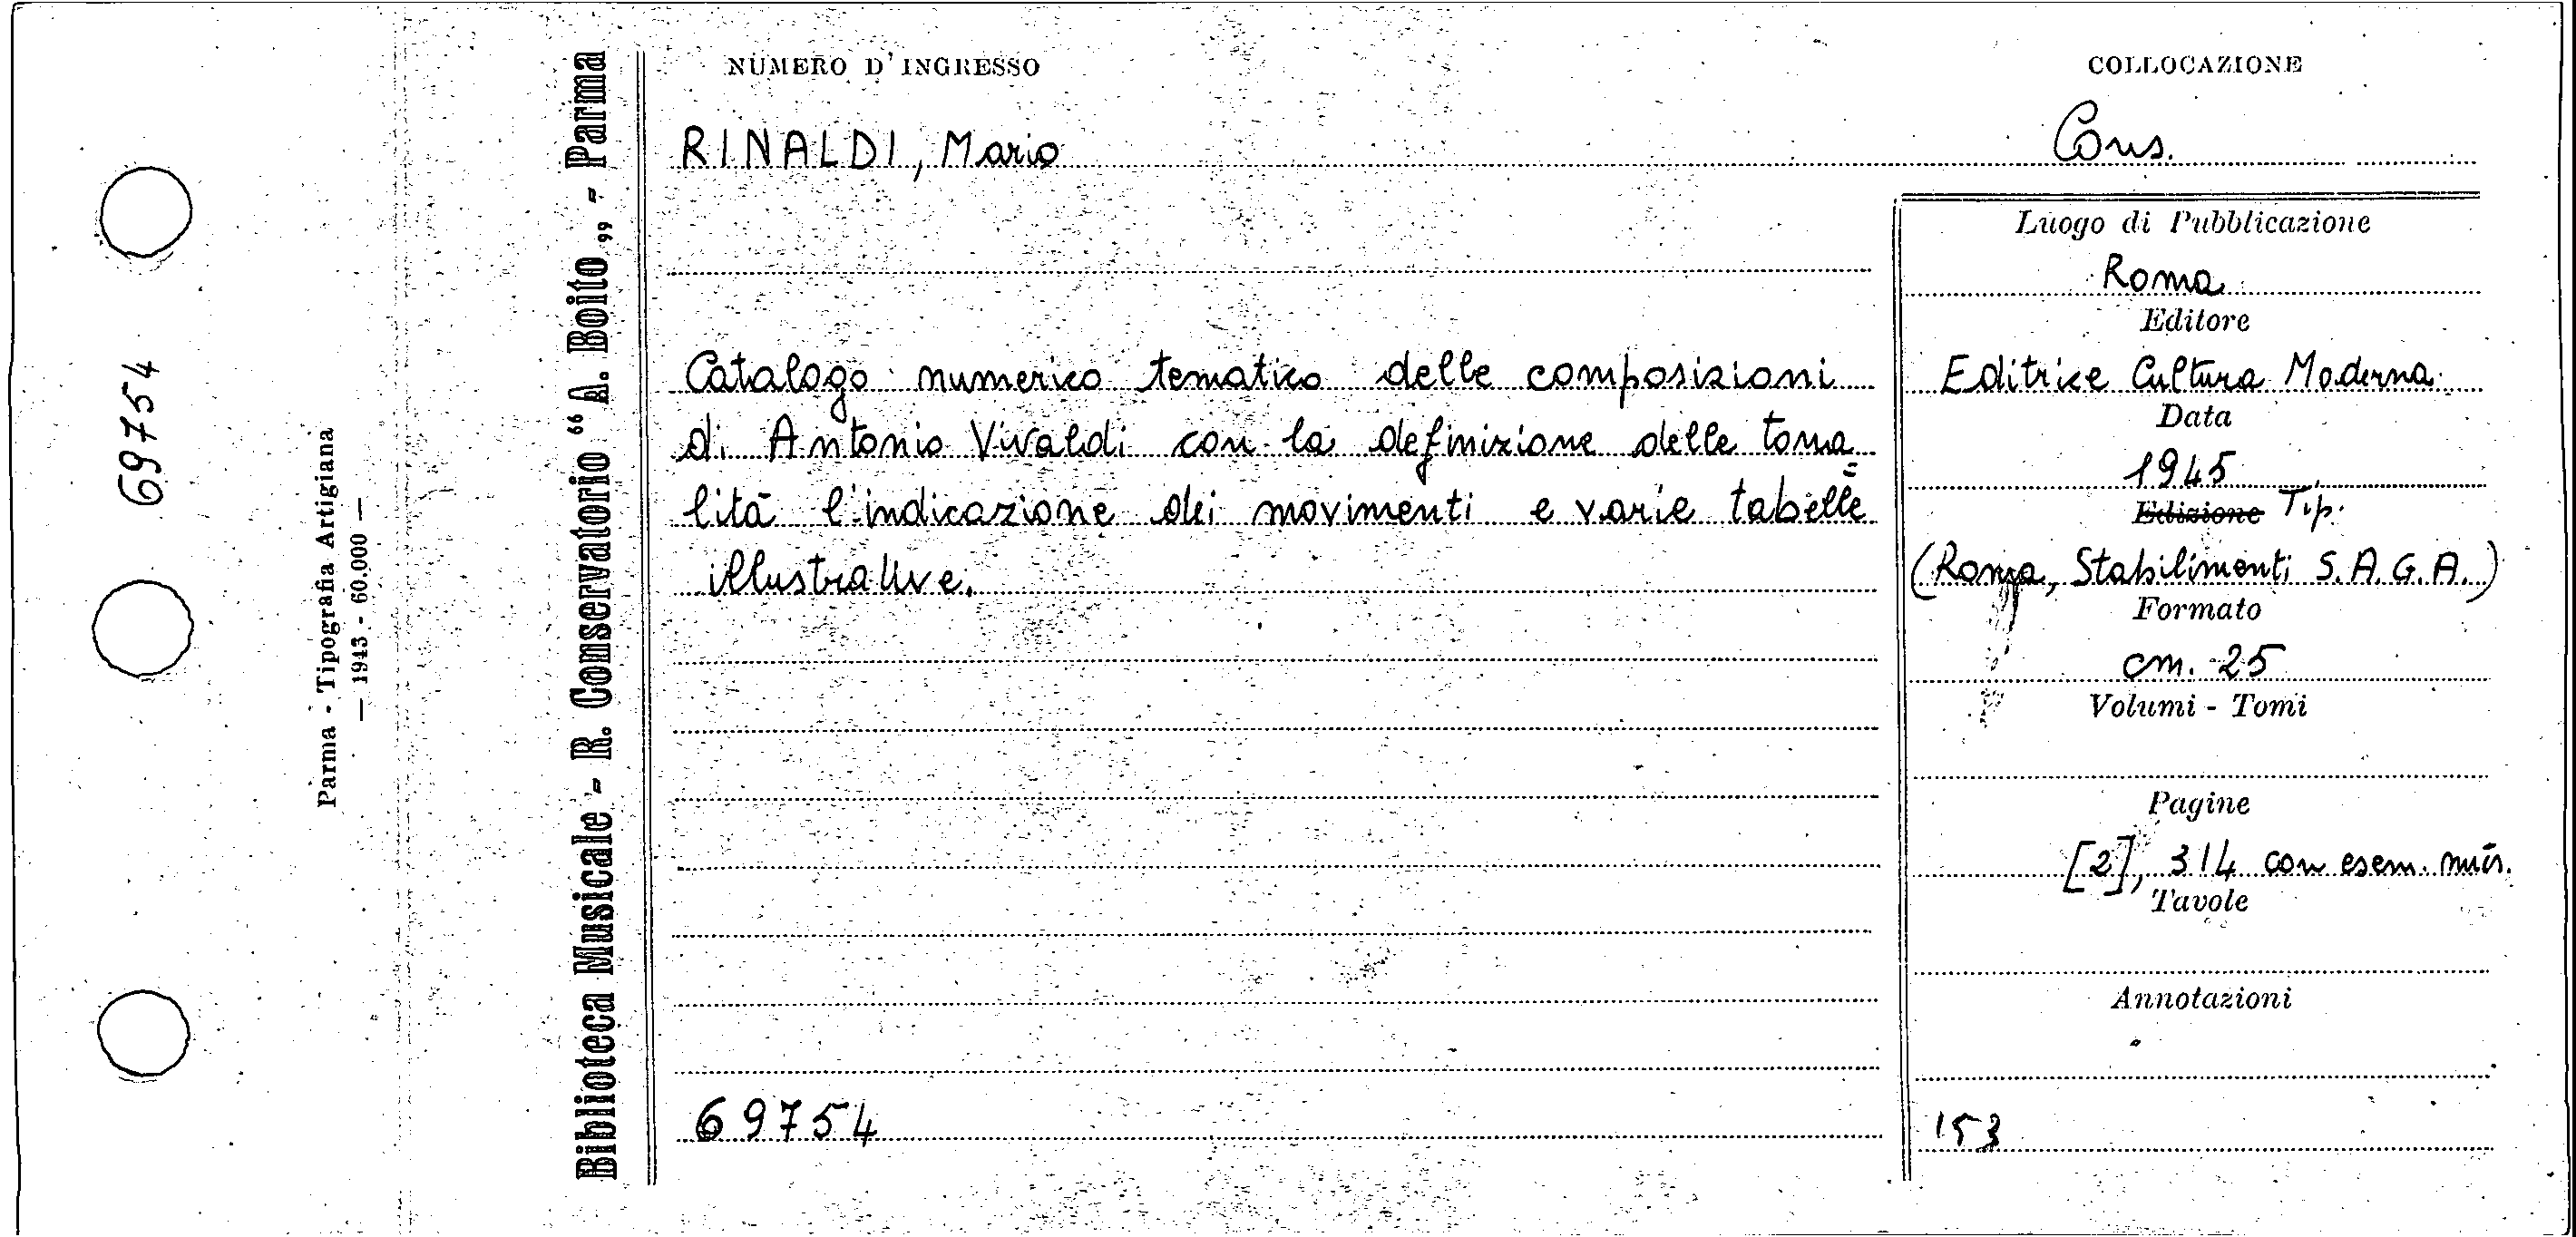 69754
Parma - Tipografia Artigiana
— 1943 - 60.000 —
Biblioteca Musicale - R. Conservatorio “ A. Boito „ - Parma
NUMERO D'INGRESSO
COLLOCAZIONE
RINALDI, Mario
Cons.
Catalogo numerico tematico delle composizioni
di Antonio Vivaldi con la definizione delle tona=
lità l'indicazione dei movimenti e varie tabelle
illustrative.
69754
Luogo di Pubblicazione
Roma
Editore
Editrice Cultura Moderna
Data
1945
Edizione Tip.
(Roma, Stabilimenti S.A.G.A.)
Formato
cm. 25
Volumi - Tomi
Pagine
[2], 314 con esem. mus.
Tavole
Annotazioni
153